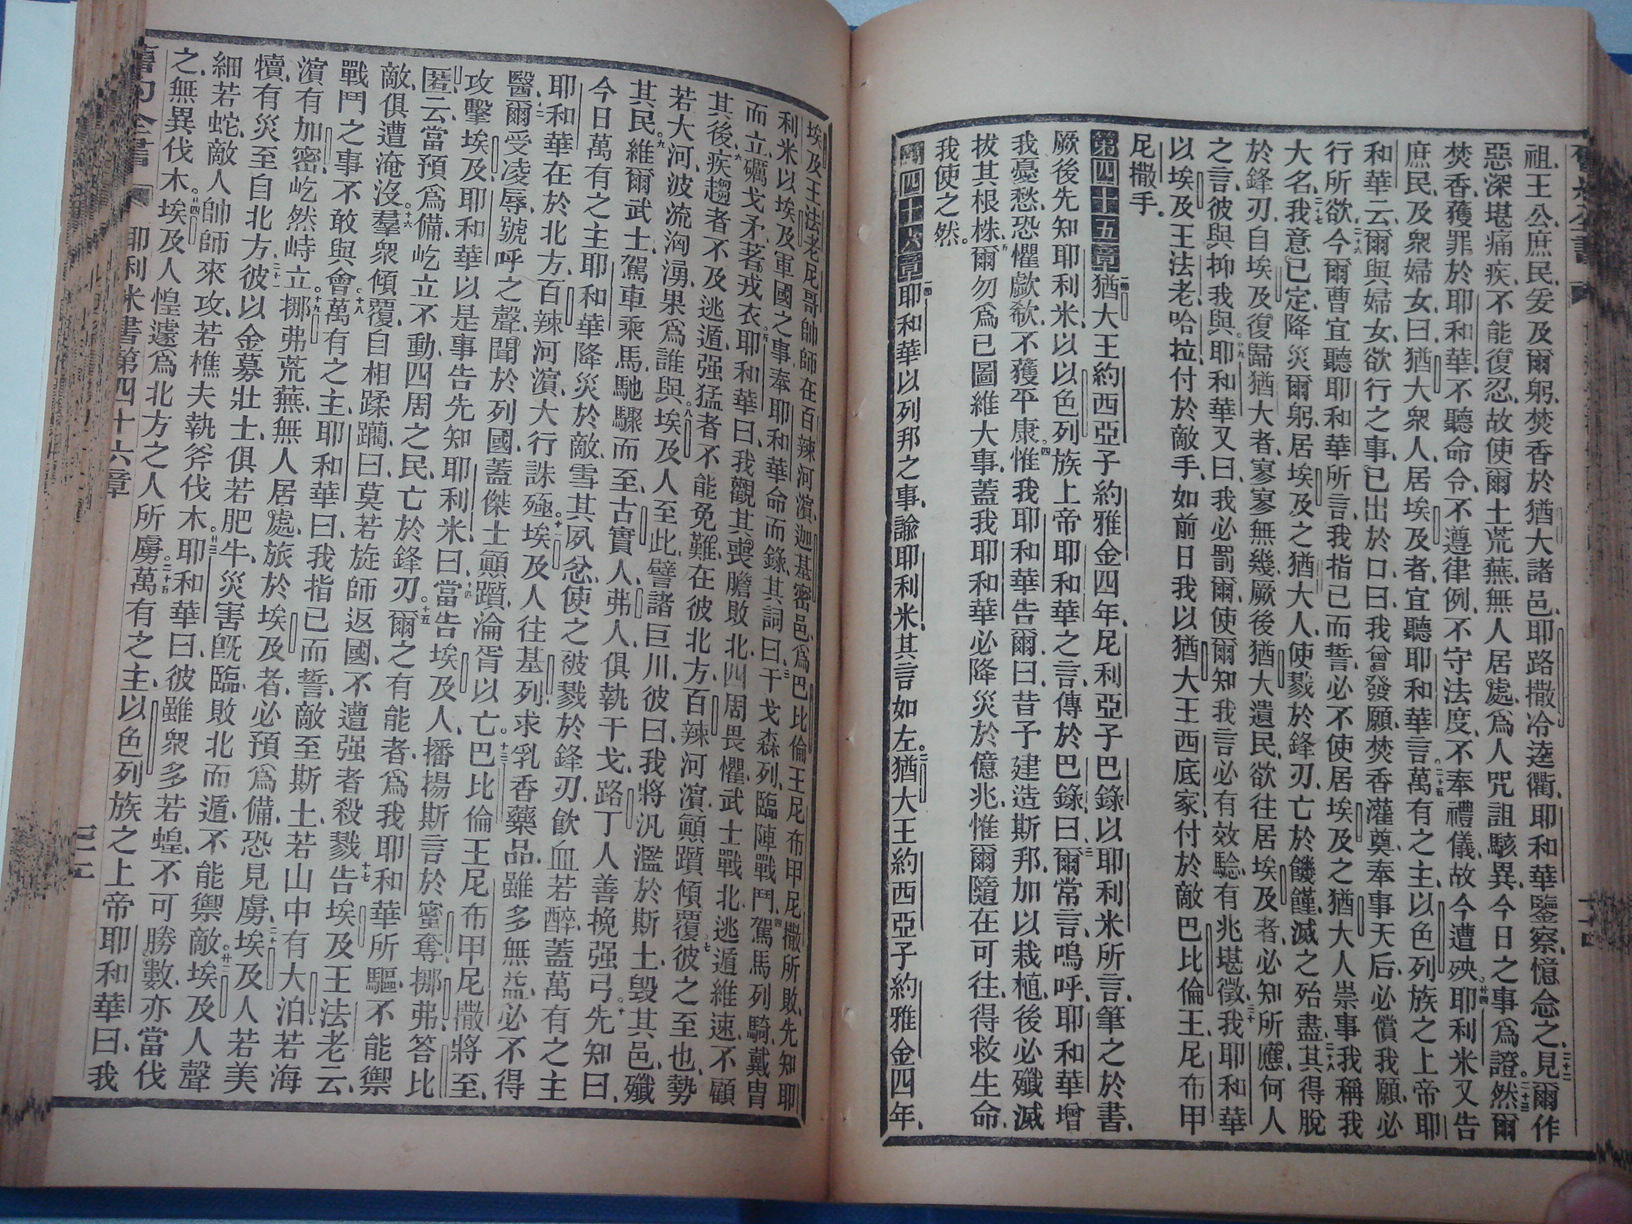 祖、王公庶民、爰及爾躬、焚香於猶大諸邑、耶路撒冷逵衢、耶和華鑒察、憶念之、見爾作
惡深堪痛疾、不能復忍、故使爾土荒蕪、無人居處、爲人咒詛駭異、今日之事爲證然、爾
焚香、獲罪於耶和華、不聽命令、不遵律例、不守法度、不奉禮儀、故今遭殃、耶利米又告
庶民、及衆婦女、曰猶大衆人、居埃及者、宜聽耶和華言、萬有之主、以色列族之上帝耶
和華云、爾與婦女、欲行之事、已出於口、曰我曾發願、焚香灌奠、奉事天后、必償我願、必
行所欲、今爾曹宜聽耶和華所言、我指己而誓、必不使居埃及之猶大人崇事我、稱我
大名、我意已定、降災爾躬、居埃及之猶大人、使戮於鋒刃、亡於饑饉、滅之殆盡、其得脫
於鋒刃、自埃及復歸猶大者、寥寥無幾、厥後猶大遺民、欲往居埃及者、必知所應何人
之言、彼與抑我與、耶和華又曰、我必罰爾、使爾知我言必有效驗、有兆堪徵、我耶和華
以埃及王法老哈拉、付於敵手、如前日我以猶大王西底家、付於敵巴比倫王尼布甲
尼撒手。
第四十五章 猶大王約西亞子約雅金四年、尼利亞子巴錄、以耶利米所言、筆之於書、
厥後先知耶利米、以以色列族上帝耶和華之言、傳於巴錄、曰、爾常言嗚呼、耶和華增
我憂愁、恐懼歔欷、不獲平康、惟我耶和華告爾曰、昔予建造斯邦、加以栽植、後必殲滅
拔其根株、爾勿爲己圖維大事、蓋我耶和華必降災於億兆、惟爾隨在可往、得救生命、
我使之然。
第四十六章 耶和華以列邦之事、諭耶利米、其言如左、猶大王約西亞子約雅金四年、
埃及王法老尼哥帥師在百辣河濱、迦基密邑、爲巴比倫王尼布甲尼撒所敗、先知耶
利米以埃及軍國之事、奉耶和華命而錄其詞、曰、干戈森列、臨陣戰鬥、駕馬列騎、戴冑
而立、礪戈矛、著戎衣、耶和華曰、我觀其喪膽敗北、四周畏懼、武士戰北、逃遁維速、不顧
其後、疾趨者不及逃遁、强猛者不能免難、在彼北方、百辣河濱、顛躓傾覆、彼之至也、勢
若大河、波流洶湧、果爲誰與、埃及人至此、譬諸巨川、彼曰、我將汎濫於斯土、毀其邑、殲
其民、維爾武士、駕車乘馬、馳驟而至、古實人、弗人、俱執干戈、路丁人善挽强弓、先知曰、
今日萬有之主耶和華、降災於敵、雪其夙忿、使之被戮於鋒刃、飮血若醉、蓋萬有之主
耶和華、在於北方、百辣河濱、大行誅殛、埃及人往基列求乳香藥品、雖多無益、必不得
醫、爾受凌辱、號呼之聲、聞於列國、蓋傑士顚躓、淪胥以亡、巴比倫王尼布甲尼撒將至、
攻擊埃及、耶和華以是事告先知耶利米、曰、當告埃及人、播揚斯言於蜜奪、挪弗、答比
匿、云、當預爲備、屹立不動、四周之民、亡於鋒刃、爾之有能者、爲我耶和華所驅、不能禦
敵、俱遭淹沒、羣衆傾覆、自相蹂躪、曰、莫若旋師返國、不遭强者殺戮、告埃及王法老云、
戰鬥之事、不敢與會、萬有之主耶和華曰、我指己而誓、敵至斯土、若山中有大泊、若海
濱有加密、屹然峙立、挪弗荒蕪、無人居處、旅於埃及者、必預爲備、恐見虜、埃及人若美
犢、有災至自北方、彼以金募壯士、俱若肥牛、災害旣臨、敗北而遁、不能禦敵、埃及人聲
細若蛇、敵人帥師來攻、若樵夫執斧伐木、耶和華曰、彼雖衆多若蝗、不可勝數、亦當伐
之、無異伐木、埃及人惶遽、爲北方之人所虜、萬有之主、以色列族之上帝耶和華曰、我
耶利米書第四十六章